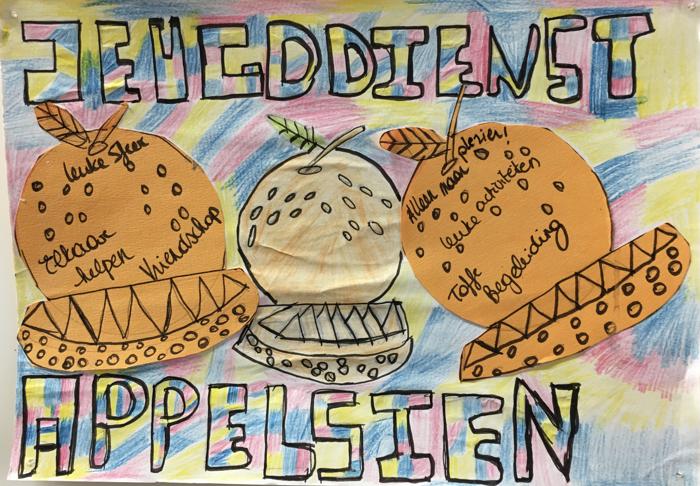 JEUGDDIENST
leuke Sfeer
Elkaar
helpen
Vriendschap
Alleen maar plezier!
leuke activiteiten
Toffe
Begeleiding
APPELSIEN